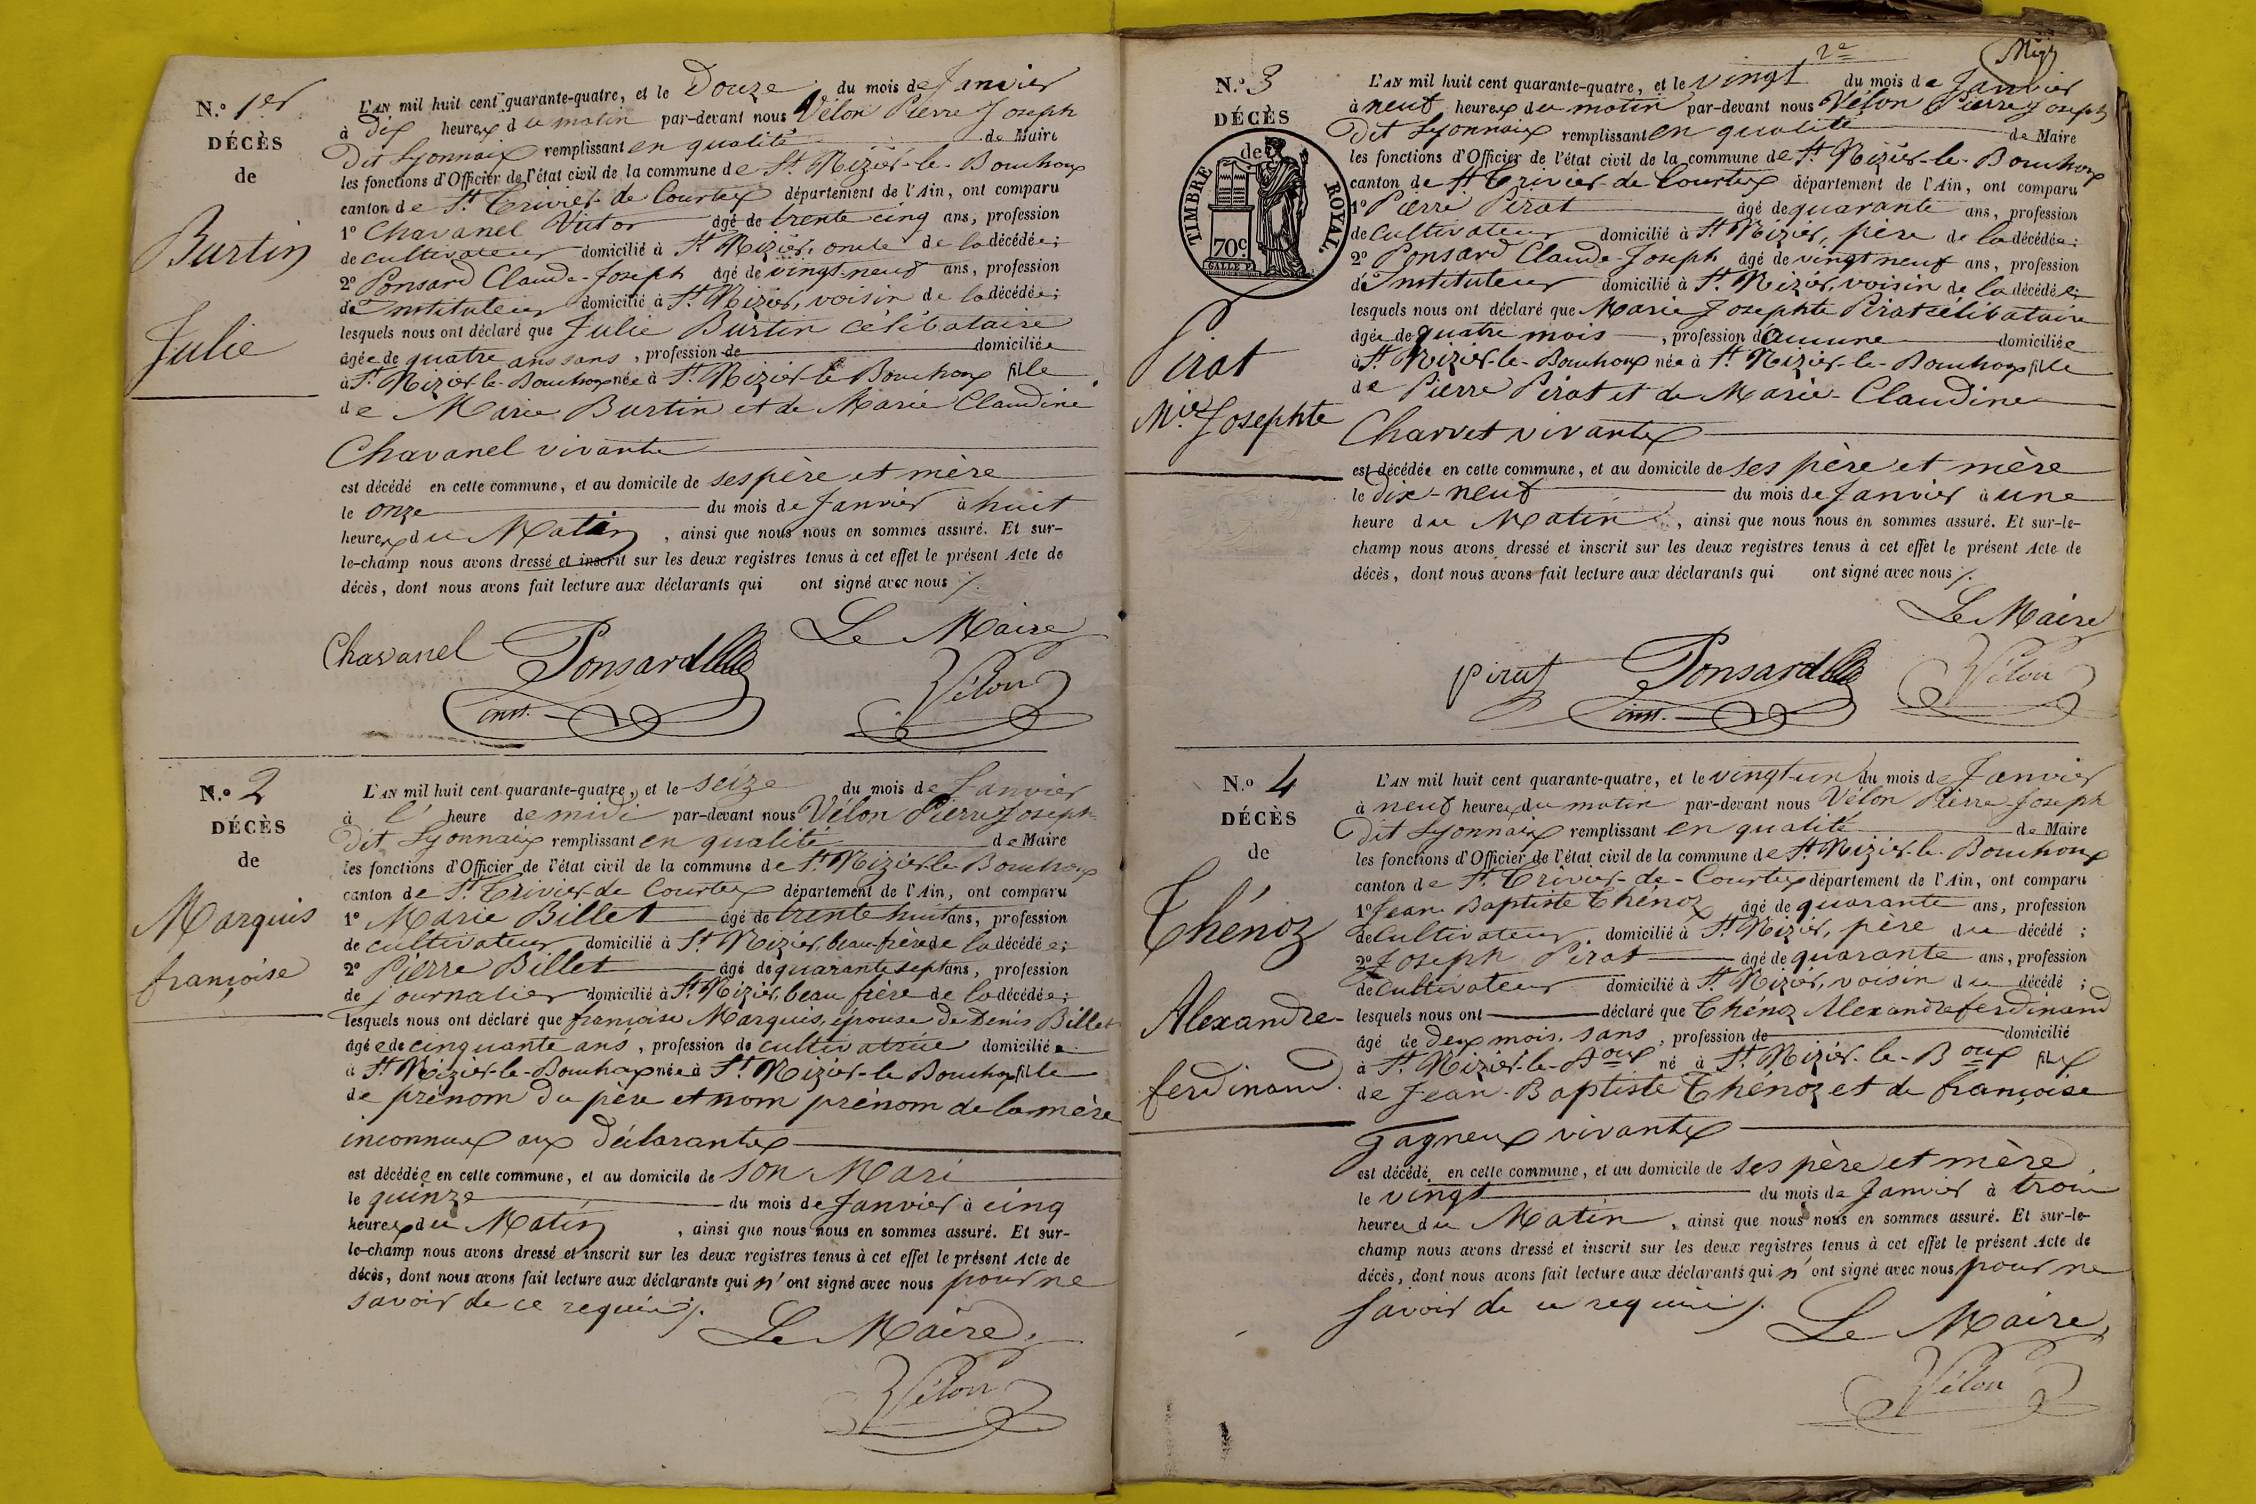 N.º 1er
DÉCÈS
de
Burtin
Julie
L'AN mil huit cent quarante-quatre, et le Douze du mois de Janvier
à Dix heures du matin par-devant nous Vélon Pierre Joseph
Dit Lyonnais remplissant en qualité de Maire
les fonctions d'Officier de l'état civil de la commune de St Nizier-le-Bouchoux
canton de St Trivier-de Courtes département de l'Ain, ont comparu
1º Chavanel Victor âgé de trente cinq ans, profession
de cultivateur domicilié à St Nizier, oncle de la décédée;
2º Ponsard Claude-Joseph âgé de vingt-neuf ans, profession
de Instituteur domicilié à St Nizier, voisin de la décédée;
lesquels nous ont déclaré que Julie Burtin célibataire
âgée de quatre ans sans, profession de domiciliée
à St Nizier-le-Bouchoux née à St Nizier-le Bouchoux fille
de Marie Burtin et de Marie Claudine
Chavanel vivants
est décédé en cette commune, et au domicile de ses père et mère
le onze du mois de Janvier à huit
heures du Matin, ainsi que nous nous en sommes assuré. Et sur-
le-champ nous avons dressé et inscrit sur les deux registres tenus à cet effet le présent Acte de
décès, dont nous avons fait lecture aux déclarants qui ont signé avec nous ./.
Le Maire
Chavanel Ponsard
inst. Vélon
N.º 2
DÉCÈS
de
Marquis
françoise
L'AN mil huit cent quarante-quatre, et le seize du mois de Janvier
à l' heure de midi par-devant nous Vélon Pierre Joseph
Dit Lyonnais remplissant en qualité de Maire
les fonctions d'Officier de l'état civil de la commune de St Nizier-le-Bouchoux
canton de St Trivier de Courtes département de l'Ain, ont comparu
1º Marie Billet âgé de trente huit ans, profession
de cultivateur domicilié à St Nizier, beau-frère de la décédée;
2º Pierre Billet âgé de quarante sept ans, profession
de journalier domicilié à St Nizier, beau frère de la décédée;
lesquels nous ont déclaré que françoise Marquis, épouse de Denis Billet
âgée de cinquante ans, profession de cultivatrice domiciliée
à St Nizier-le-Bouchoux née à St Nizier-le Bouchoux fille
de prénom du père et nom prénom de la mère
inconnus aux déclarants
est décédée en cette commune, et au domicile de son Mari
le quinze du mois de Janvier à cinq
heures du Matin, ainsi que nous nous en sommes assuré. Et sur-
le-champ nous avons dressé et inscrit sur les deux registres tenus à cet effet le présent Acte de
décès, dont nous avons fait lecture aux déclarants qui n'ont signé avec nous pour ne
savoir de ce requis ./.
Le Maire
Vélon
2e
N.º 3
DÉCÈS
de
TIMBRE ROYAL.
70c
Pirat
Mie Josephte
L'AN mil huit cent quarante-quatre, et le vingt du mois de Janvier
à neuf heures du matin par-devant nous Vélon Pierre Joseph
Dit Lyonnais remplissant en qualité de Maire
les fonctions d'Officier de l'état civil de la commune de St Nizier-le-Bouchoux
canton de St Trivier-de Courtes département de l'Ain, ont comparu
1º Pierre Pirat âgé de quarante ans, profession
de cultivateur domicilié à St Nizier, père de la décédée;
2º Ponsard Claude-Joseph âgé de vingt neuf ans, profession
d'Instituteur domicilié à St Nizier, voisin de la décédée;
lesquels nous ont déclaré que Marie Josephte Pirat célibataire
âgée de quatre mois, profession d'aucune domiciliée
à St Nizier-le-Bouchoux née à St Nizier-le-Bouchoux fille
de Pierre Pirat et de Marie-Claudine
Charvet vivants
est décédée en cette commune, et au domicile de ses père et mère
le dix-neuf du mois de Janvier à une
heure du Matin, ainsi que nous nous en sommes assuré. Et sur-le-
champ nous avons dressé et inscrit sur les deux registres tenus à cet effet le présent Acte de
décès, dont nous avons fait lecture aux déclarants qui ont signé avec nous ./.
Le Maire
pirat Ponsard Vélon
inst.
N.º 4
DÉCÈS
de
Thénoz
Alexandre-
ferdinand.
L'AN mil huit cent quarante-quatre, et le vingt-un du mois de Janvier
à neuf heures du matin par-devant nous Vélon Pierre-Joseph
Dit Lyonnais remplissant en qualité de Maire
les fonctions d'Officier de l'état civil de la commune de St Nizier-le-Bouchoux
canton de St Trivier-de-Courtes département de l'Ain, ont comparu
1º Jean Baptiste Thénoz âgé de quarante ans, profession
de cultivateur domicilié à St Nizier, père du décédé;
2º Joseph Pirat âgé de quarante ans, profession
de cultivateur domicilié à St Nizier, voisin du décédé;
lesquels nous ont déclaré que Thénoz Alexandre ferdinand
âgé de deux mois, sans, profession de domicilié
à St Nizier-le-Boux né à St Nizier-le-Boux fils
de Jean-Baptiste Thénoz et de françoise
Gagneux vivants
est décédé en cette commune, et au domicile de ses père et mère
le vingt du mois de Janvier à trois
heures du Matin, ainsi que nous nous en sommes assuré. Et sur-le-
champ nous avons dressé et inscrit sur les deux registres tenus à cet effet le présent Acte de
décès, dont nous avons fait lecture aux déclarants qui n'ont signé avec nous pour ne
savoir de ce requis ./.
Le Maire
Vélon